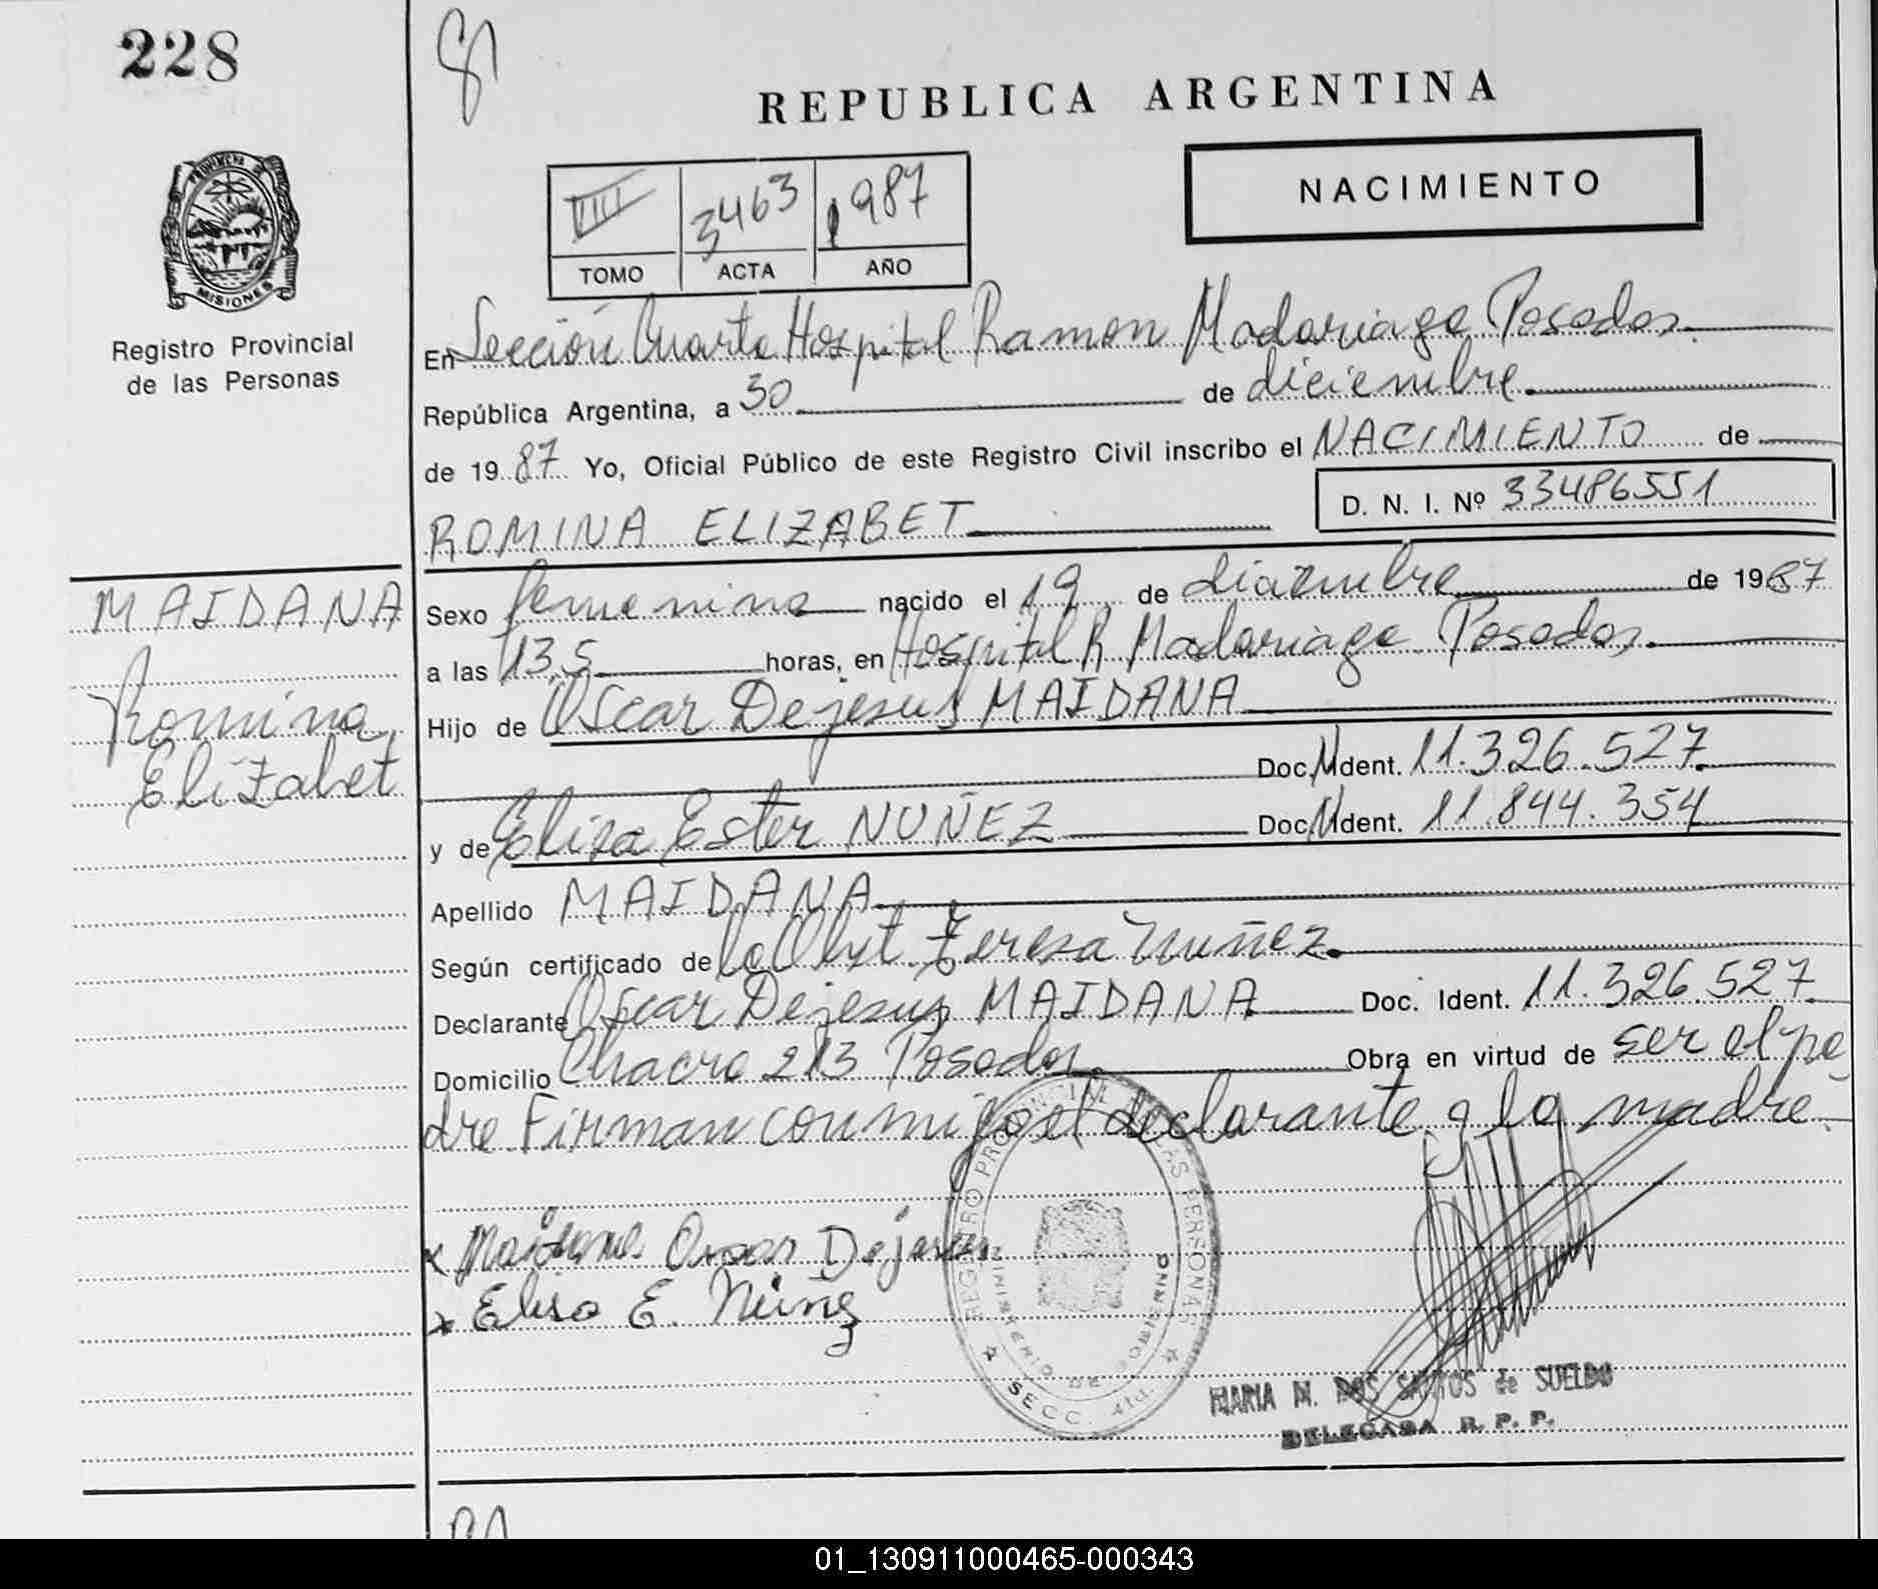 228
REPUBLICA ARGENTINA
PROVINCIA DE
MISIONES
Registro Provincial
de las Personas
NACIMIENTO
VIII 3463 1987
TOMO ACTA AÑO
En Sección Cuarta Hospital Ramon Madariaga Posadas.
República Argentina, a 30 de diciembre
de 1987 Yo, Oficial Público de este Registro Civil inscribo el NACIMIENTO de
ROMINA ELIZABET D. N. I. Nº 33486551
MAIDANA
Romina
Elizabet
Sexo femenino nacido el 19 de diciembre de 1987
a las 13,5 horas, en Hospital R Madariaga Posadas.
Hijo de Oscar Dejesus MAIDANA
Doc. Ident. 11.326.527
y de Elisa Ester NUÑEZ Doc. Ident. 11.844.354
Apellido MAIDANA
Según certificado de la Obst. Teresa Nuñez.
Declarante Oscar Dejesus MAIDANA Doc. Ident. 11.326.527
Domicilio Chacra 213 Posadas Obra en virtud de ser el pa
dre. Firman conmigo el declarante y la madre.
x Maidana Oscar Dejesus
x Elisa E. Núñez
REGISTRO PROVINCIAL DE LAS PERSONAS
MINISTERIO DE GOBIERNO
SECC. 4ta.
MARIA M. DOS SANTOS de SUELDO
DELEGADA R. P. P.
01_130911000465-000343